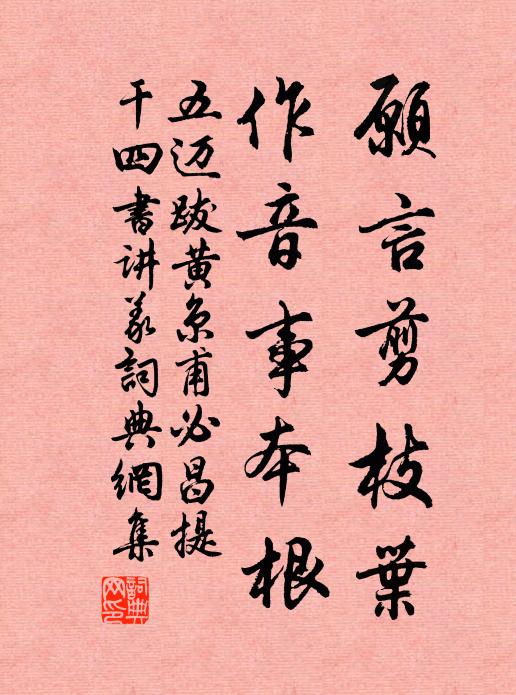 願言剪枝葉
作音事本根
五迈跋黄京甫必昌提
干四書讲义詞典網集
詞典網印